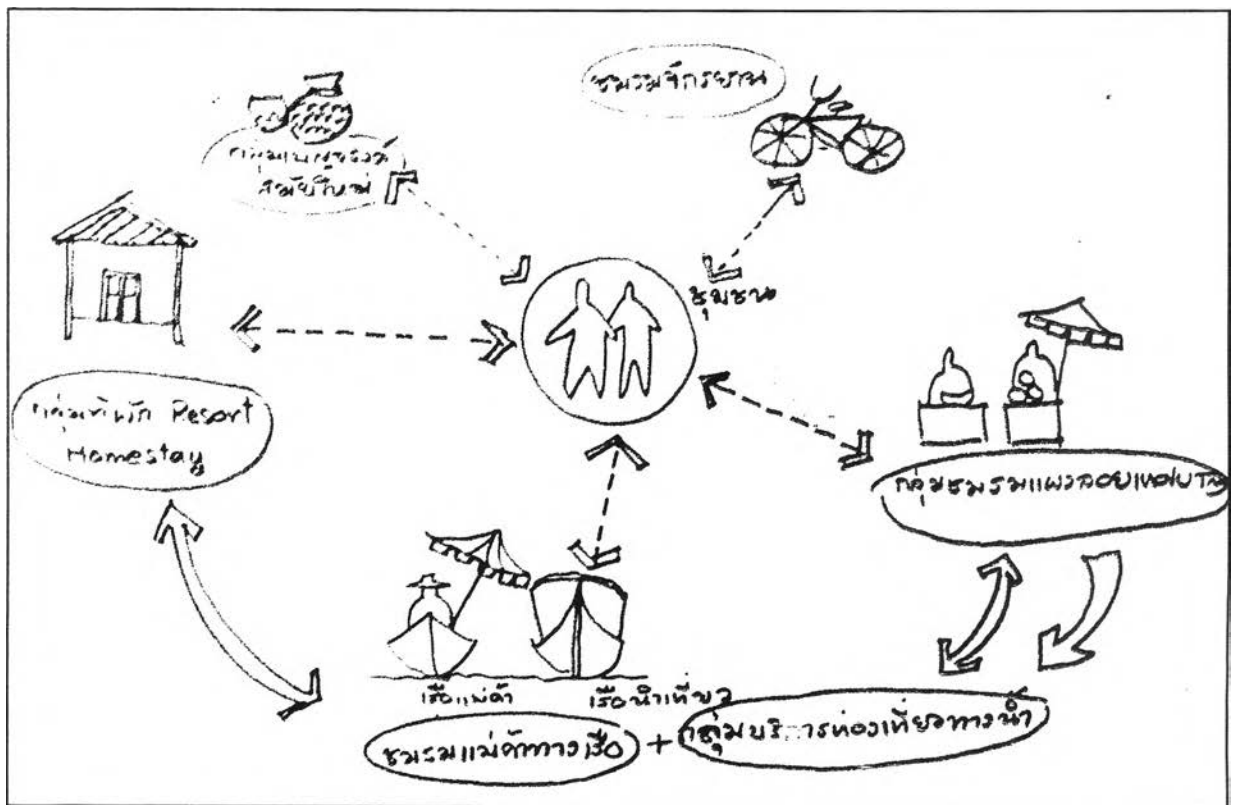 ชมรมจักรยาน
สมัยใหม่
ชุมชน
กลุ่มที่พัก Resort
Homestay
กลุ่มชมรมแผงลอยเทศบาล
เรือแม่ค้า
เรือนำเที่ยว
ชมรมแม่ค้าทางเรือ + กลุ่มบริการท่องเที่ยวทางน้ำ